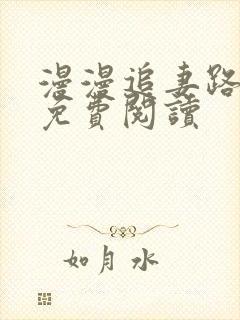 漫漫追妻路
免費閱讀
如月水